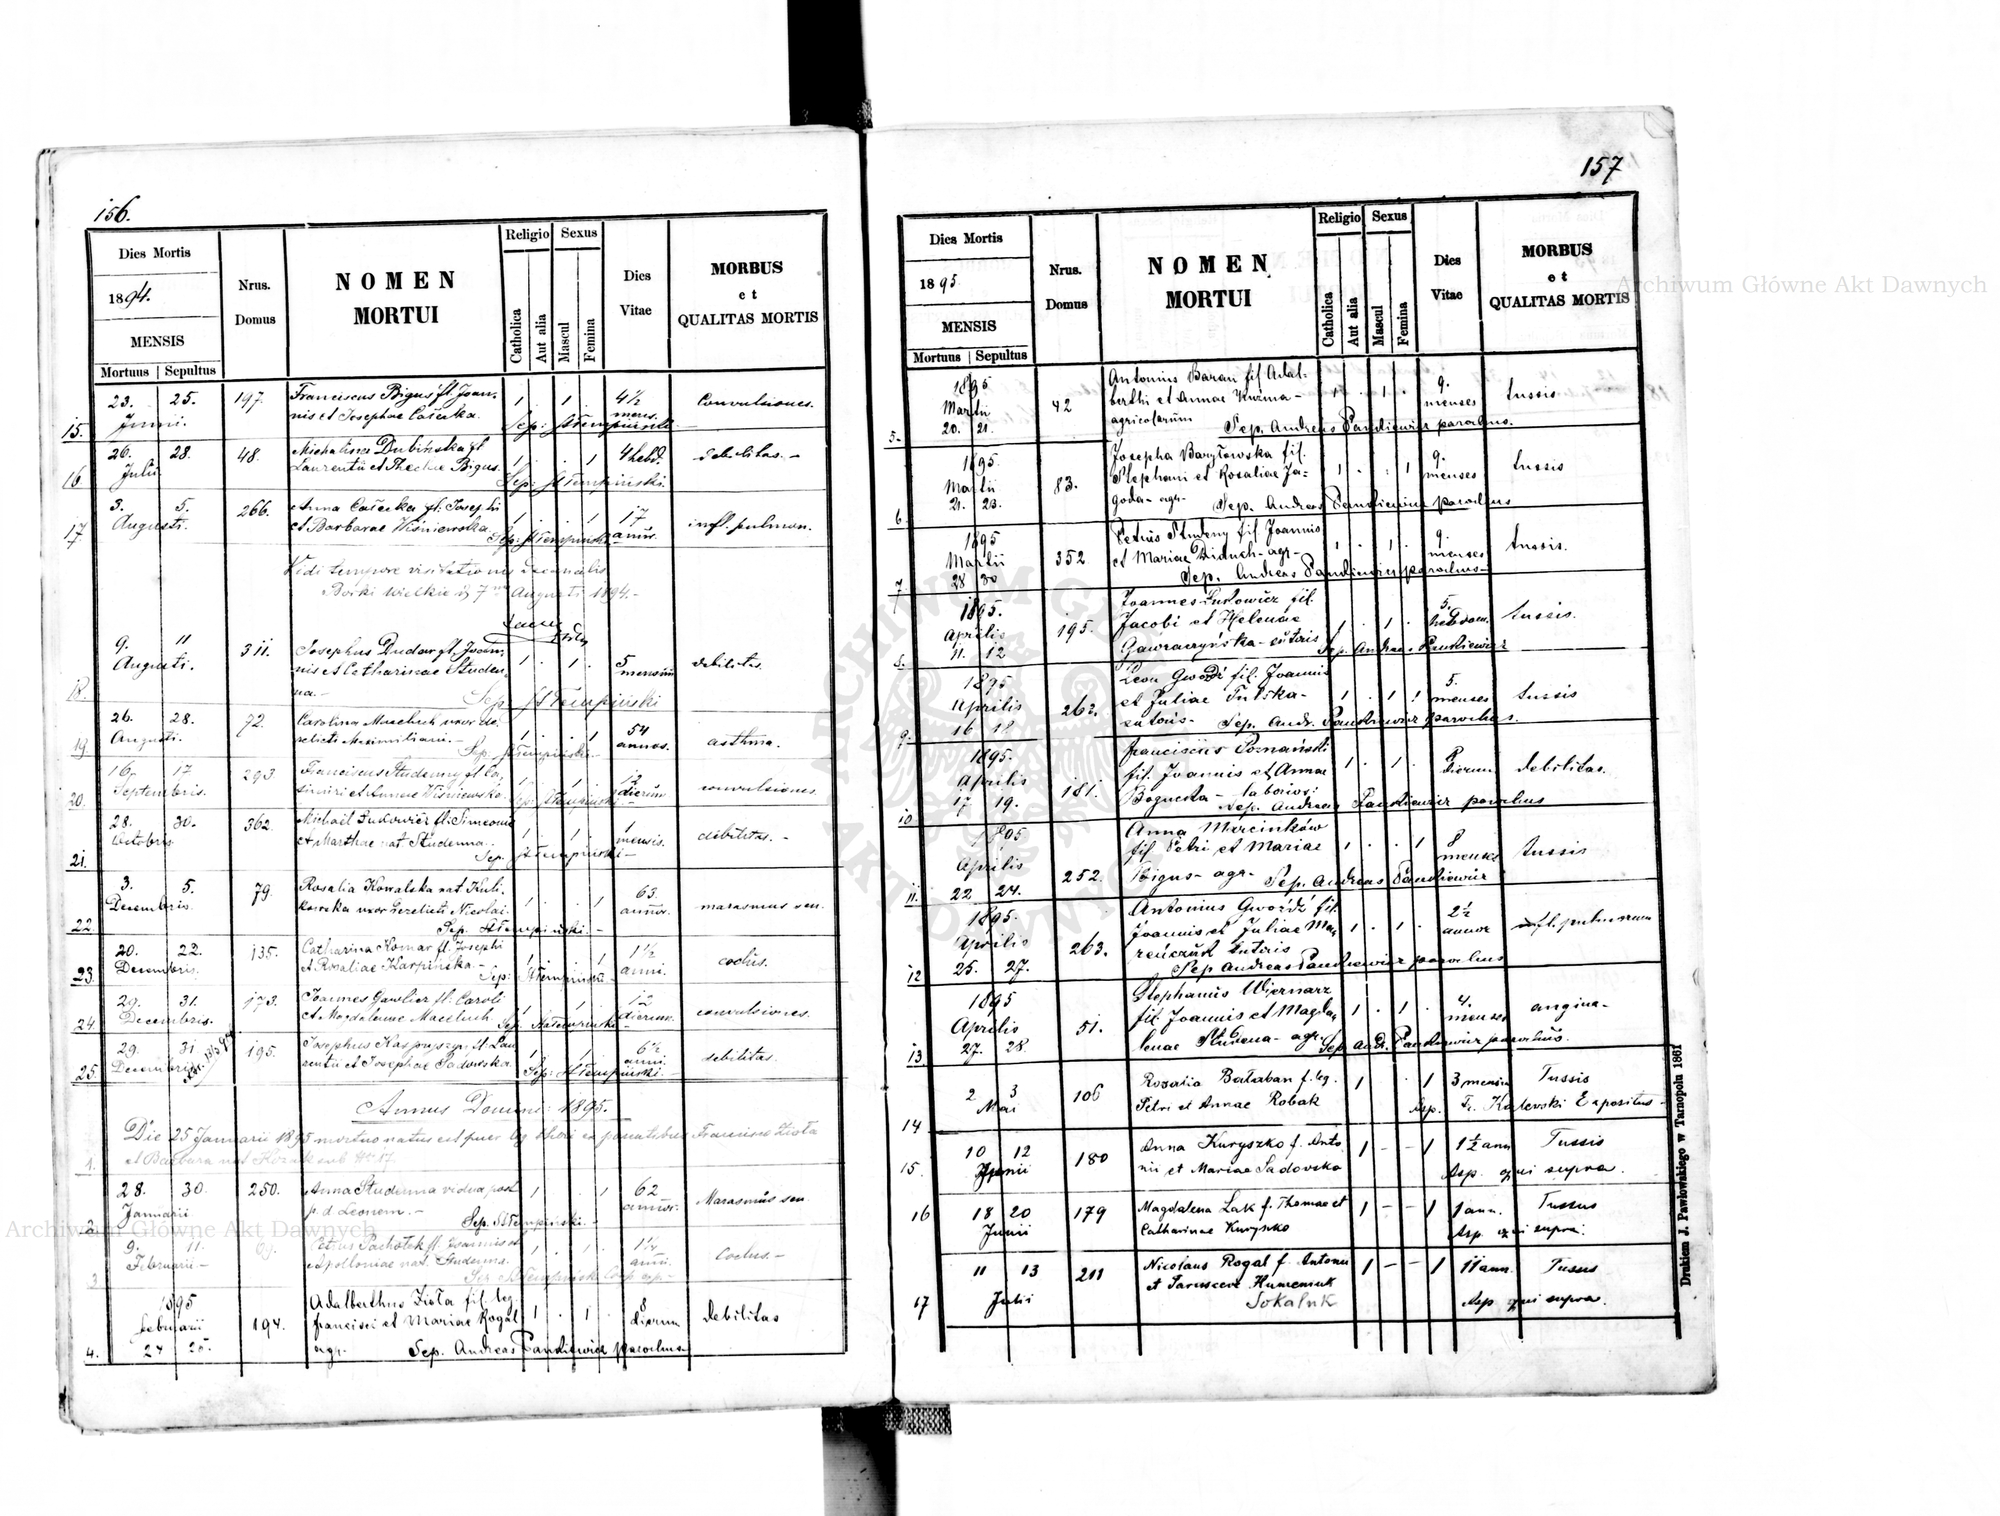 156.
Dies Mortis
1894.
MENSIS
Mortuus | Sepultus
Nrus. Domus
NOMEN MORTUI
Religio
Catholica
Aut alia
Sexus
Mascul
Femina
Dies Vitae
MORBUS et QUALITAS MORTIS
15. 23. 25. Junii. 197. Franciscus Bigus fl. Joan-
nis et Josephae 1 . 1 . 4½ mens. Convulsiones.
Sep: St Tempiński
16 26. 28. Julii 48. Michalina Dubińska fl
Laurentii et Theclae Bigus. 1 . . 1 4 hebd. debilitas. –
Sep: St Tempiński.
17 3. 5. Augusti. 266. Anna fl: Josephi
et Barbarae Wiśniewska 1 . . 1 17 annor. infl. pulmon.
Sep: St Tempiński
Vidi tempore visitationis decanalis
Borki wielkie d 7 Augusti 1894. –
18. 9. 11 Augusti. 311. Josephus Dudar fl. Joan-
nis et Catharinae Studen-
na. – 1 . 1 . 5 mensium debilitas.
Sep. St Tempiński
19. 26. 28. Augusti. 72. Carolina Maciuch uxor de-
relicti Maximiliani. – 1 . . 1 54 annos. asthma.
Sep. St Tempiński. –
20. 16. 17 Septembris. 293 Franciscus Studenny fl Ca-
simiri et Annae Wiśniewska 1 . 1 . 12 dierum convulsiones.
Sep: St Tempiński –
21. 28. 30. Octobris 362. Michaël Sudowicz fl: Simeonis
et Marthae nat. Studenna. 1 . 1 . 1 mensis. debilitas. –
Sep. St Tempiński –
22. 3. 5. Decembris. 79. Rosalia Kowalska nat. Kuli-
kowska uxor derelicti Nicolai. 1 . . 1 63. annor. marasmus sen.
Sep. St Tempiński. –
23. 20. 22. Decembris. 135. Catharina Komar fl. Josephi
et Rosaliae Karpińska – 1 . . 1 1½ anni. coclus.
Sep: St Tempiński
24. 29. 31. Decembris. 173. Joannes Gawlicz fl: Caroli
et Magdalenae Maciuch. 1 . 1 . 12 dierum. convulsiones.
Sep. St Tempiński
25. 29. 31. Decembris 195. Josephus Kasprzyn fl: Lau-
rentii et Josephae Sadowska. 1 . 1 . 6½ anni. debilitas.
Sep: St Tempiński. –
Annus Domini: 1895.
1. Die 25 Januarii 1895 mortuo natus est puer leg thori ex parentibus Francisco Zioła
et Barbara nat Kozak sub Nr. 17.
2. 28. 30. Januarii 250. Anna Studenna vidua post
p. d Leonem. – 1 . . 1 62 annor. Marasmus sen.
Sep. St Tempiński. –
3 9. 11. Februarii – Petrus Pachołek fl. Joannis et
Apolloniae nat. Studenna. 1 . 1 . 1½ anni. Coclus. –
Sep St Tempiński
4. 1895 februarii 24 25. 194. Adalberthus Zioła fil. leg.
francisci et Mariae Rogal
agr. 1 . 1 . 8 dierum debilitas
Sep. Andreas Pankiewicz parochus
157
Dies Mortis
1895.
MENSIS
Mortuus | Sepultus
Nrus. Domus
NOMEN MORTUI
Religio
Catholica
Aut alia
Sexus
Mascul
Femina
Dies Vitae
MORBUS et QUALITAS MORTIS
5. 1895 Martii 20. 21. 42 Antonius Baran fil Adal-
berthi et Annae Kuzma –
agricolarum 1 . 1 . 9. menses tussis
Sep. Andreas Pankiewicz parochus.
6. 1895. Martii 21. 23. 83. Josepha Baryłowska fil.
Stephani et Rosaliae Ja-
goda – agr. 1 . . 1 9. menses tussis
Sep. Andreas Pankiewicz parochus
7. 1895 Martii 28 30 352 Petrus Studeny fil Joannis
et Mariae Diduch – agr – 1 . 1 . 9. menses tussis.
Sep. Andreas Pankiewicz parochus –
8. 1895. Aprilis 11. 12 195. Joannes Sudowicz fil.
Jacobi et Helenae
Gawraczyńska – 1 . 1 . 5. hebdom. tussis.
Sep. Andreas Pankiewicz
9. 1895 Aprilis 16 18 262. Leon Gwoźdź fil. Joannis
et Juliae
1 . 1 ! 5. menses tussis
Sep. Andr. Pankiewicz parochus.
10 1895. Aprilis 17 19. 181. franciscus Poznański
fil. Joannis et Annae
Bogucka – laborios: 1 . 1 . 8 dierum debilitas.
Sep. Andreas Pankiewicz parochus
11. 1895 Aprilis 22 24. 252. Anna Marcinków
fil. Petri et Mariae
Bigus – agr – 1 . . 1 8 menses tussis
Sep. Andreas Pankiewicz
12 1895. Aprilis 25. 27. 263. Antonius Gwoźdź fil.
Joannis et Juliae Ma-
1 . 1 . 2½ annor infl. pulmonum
Sep Andreas Pankiewicz parochus
13 1895 Aprilis 27. 28. 51. Stephanus Wiernarz
fil. Joannis et Magda-
lenae Studena – agr. 1 . 1 . 4. menses angina –
Sep. And. Pankiewicz parochus.
14 2 3 Mai 106 Rosalia Bałaban f. leg.
Petri et Annae Robak 1 . 1 3 mensium Tussis
Asp. Fr. Kalevski Expositus –
15. 10 12 Junii 180 Anna Kuryszko f. Anto-
nii et Mariae Sadovska 1 – – 1 1½ ann Tussis
Asp. qui supra.
16 18 20 Junii 179 Magdalena Lak f. Thomae et
Catharinae Kurysko 1 – – 1 1 ann. Tussus
Asp. qui supra.
17 11 13 Julii 211 Nicolaus Rogal f. Antonii
et Parascevae Humeniuk
Sokaluk 1 – – 1 11 ann. Tussus
Asp qui supra.
Drukiem J. Pawłowskiego w Tarnopolu 1861
Archiwum Główne Akt Dawnych
Archiwum Główne Akt Dawnych
ARCHIWUM GŁÓWNE AKT DAWNYCH